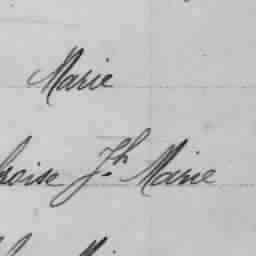 Marie
oise Jh Marie